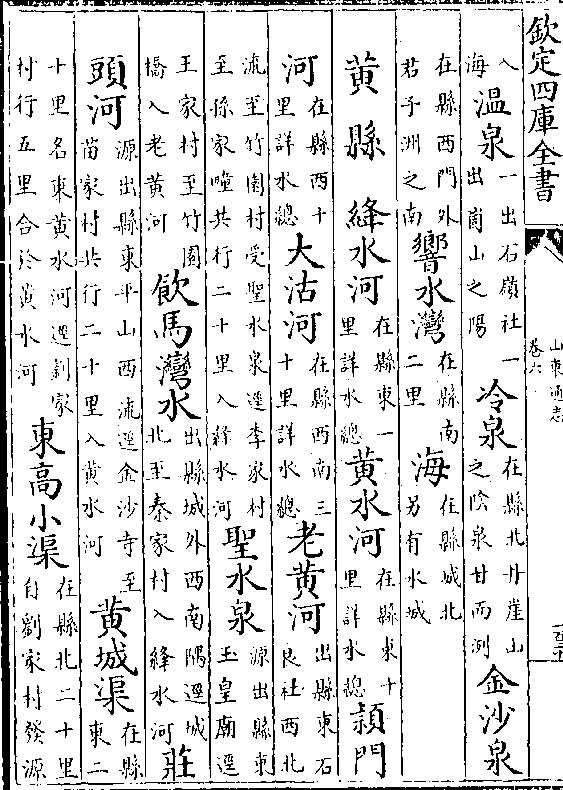 欽定四庫全書
山東通志
卷六
入海 溫泉 一出石嶺社一出崮山之陽 冷泉 在縣北丹崖山之陰泉甘而洌 金沙泉
在縣西門外君子洲之南 響水灣 在縣南二里 海 在縣城北另有水城
黃縣 絳水河 在縣東一里詳水總 黃水河 在縣東十里詳水總 頴門
河 在縣西十里詳水總 大沽河 在縣西南三十里詳水總 老黃河 出縣東石良社西北
流至竹園村受聖水泉逕李家村至孫家疃共行二十里入絳水河 聖水泉 源出縣東玉皇廟逕
王家村至竹園橋入老黃河 飲馬灣水 出縣城外西南隅逕城北至秦家村入絳水河 莊
頭河 源出縣東平山西流逕金沙寺至苗家村共行二十里入黃水河 黃城渠 在縣東二
十里名東黃水河逕劉家村行五里合於黃水河 東高小渠 在縣北二十里自劉家村發源